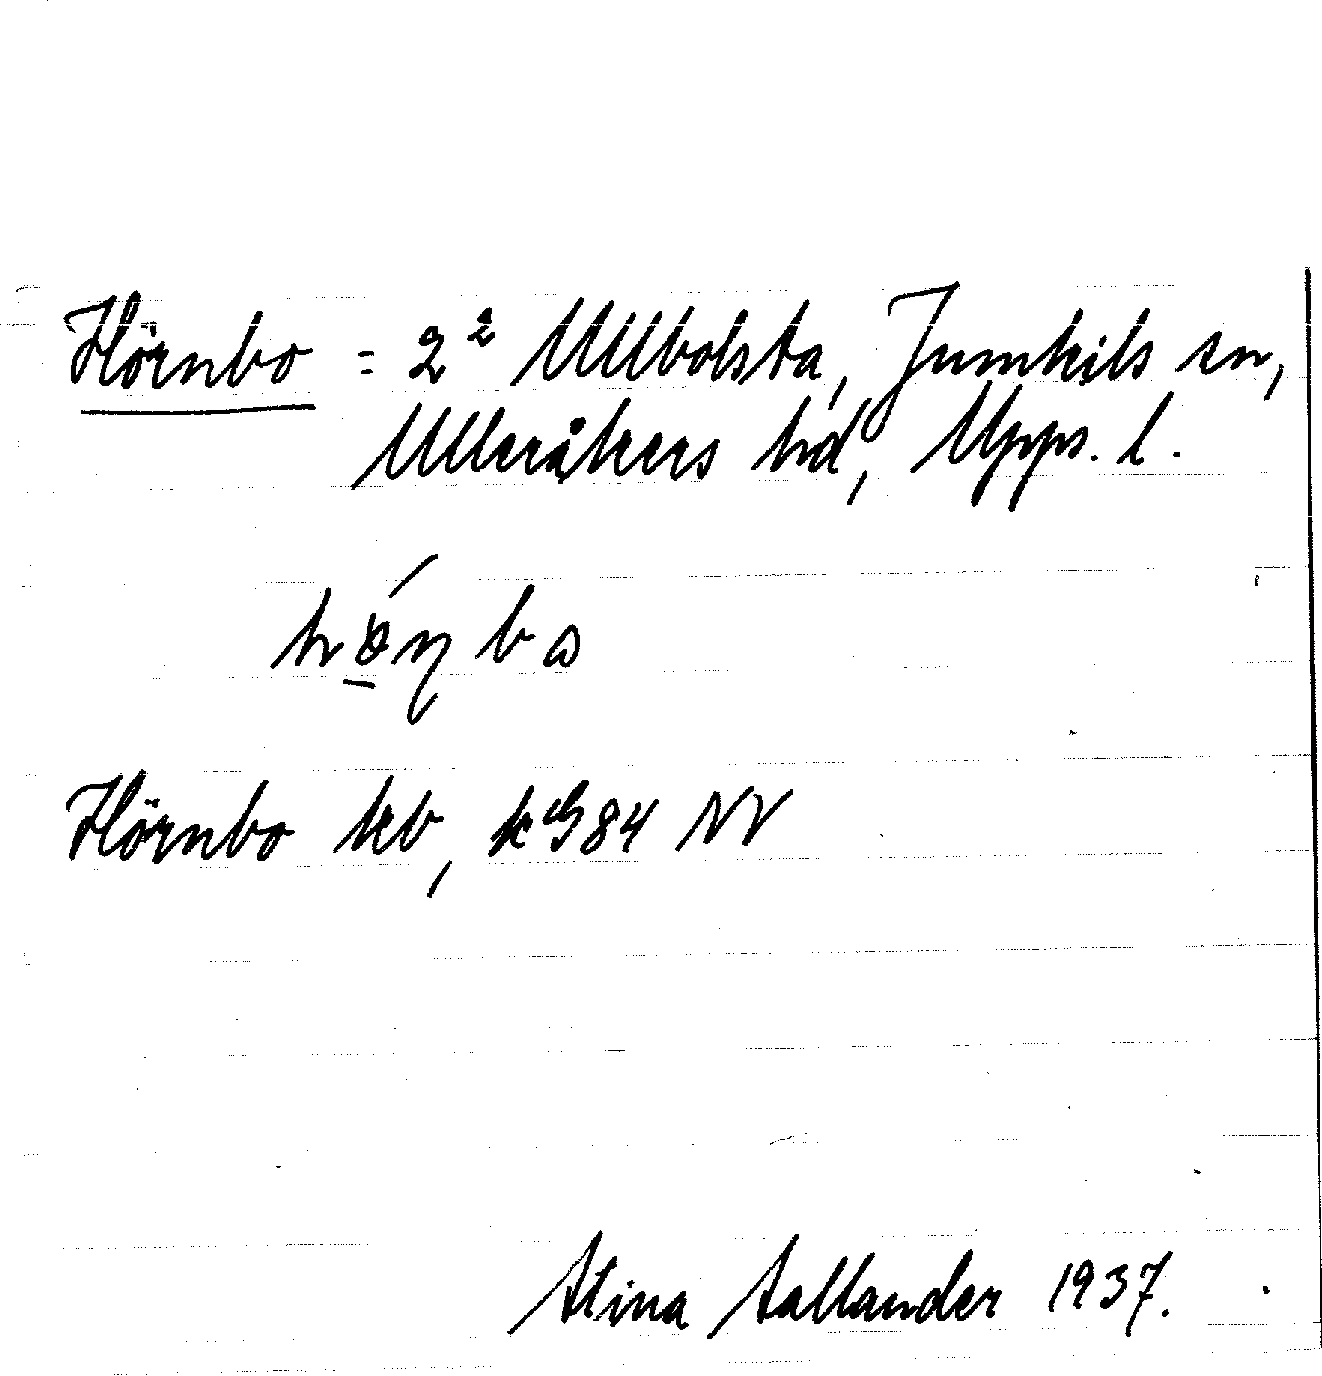 Hörnbo = 2² Ullbolsta, Jumkils sn,
Ulleråkers hd, Upps. l.
Hörnbo kb, k G84 NV
Stina Sallander 1937.